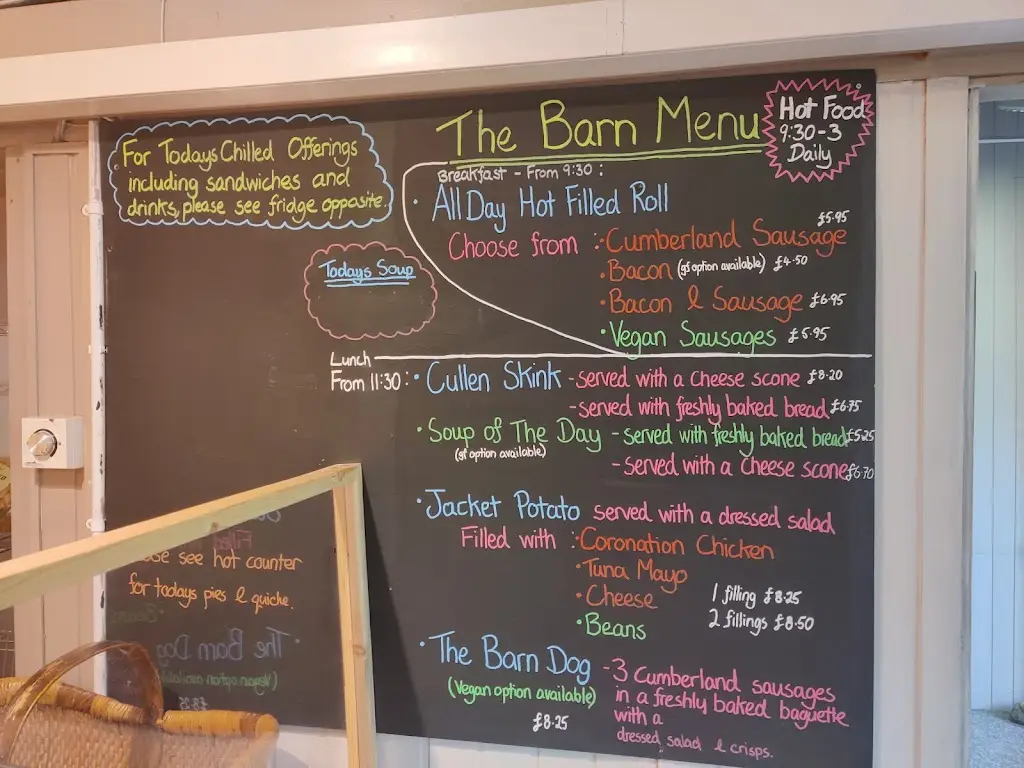 For Todays Chilled Offerings
including sandwiches and
drinks, please see fridge opposite.
The Barn Menu
Hot Food
9:30-3
Daily
Breakfast - From 9:30 :
· All Day Hot Filled Roll
£5.95
Choose from : · Cumberland Sausage
· Bacon (gf option available) £4.50
· Bacon & Sausage £6.95
· Vegan Sausages £5.95
Todays Soup
Lunch
From 11:30 : · Cullen Skink - served with a cheese scone £8.20
- served with freshly baked bread £6.75
· Soup of The Day - served with freshly baked bread £5.25
(gf option available)
- served with a cheese scone £6.70
· Jacket Potato served with a dressed salad
Filled with : · Coronation Chicken
· Tuna Mayo
· Cheese
· Beans
1 filling £8.25
2 fillings £8.50
· The Barn Dog - 3 Cumberland sausages
(Vegan option available) in a freshly baked baguette
£8.25 with a
dressed salad & crisps.
see hot counter
for todays pies & quiche.